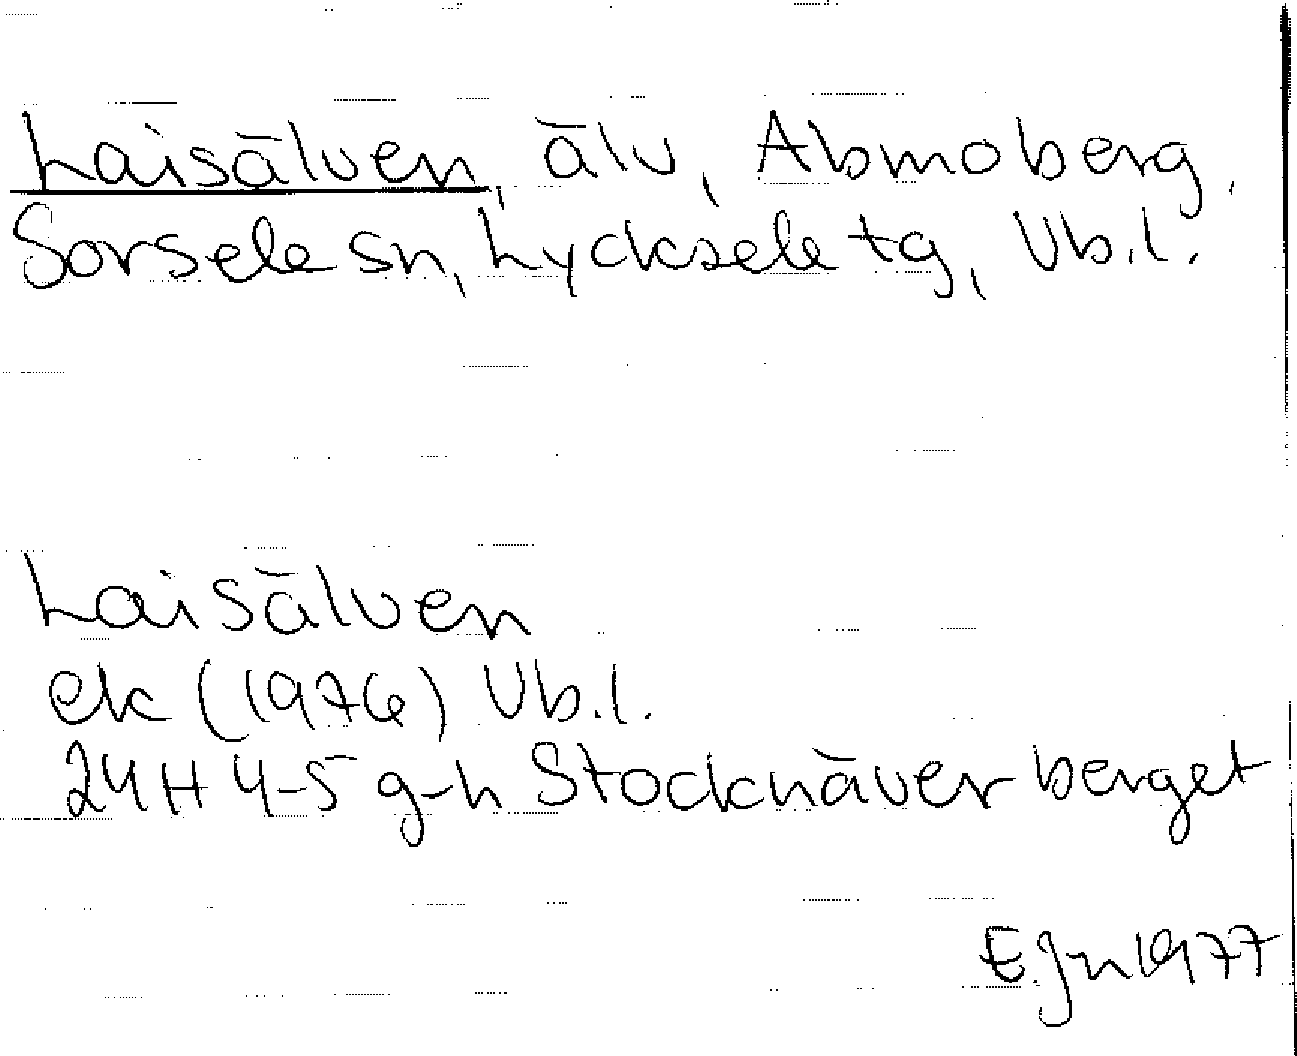 Laisälven, älv, Abmoberg,
Sorsele sn, Lycksele tg, Vb.l.
Laisälven
ek (1976) Vb.l.
24H 4-5 g-h Stocknäverberget
E.Jn 1977